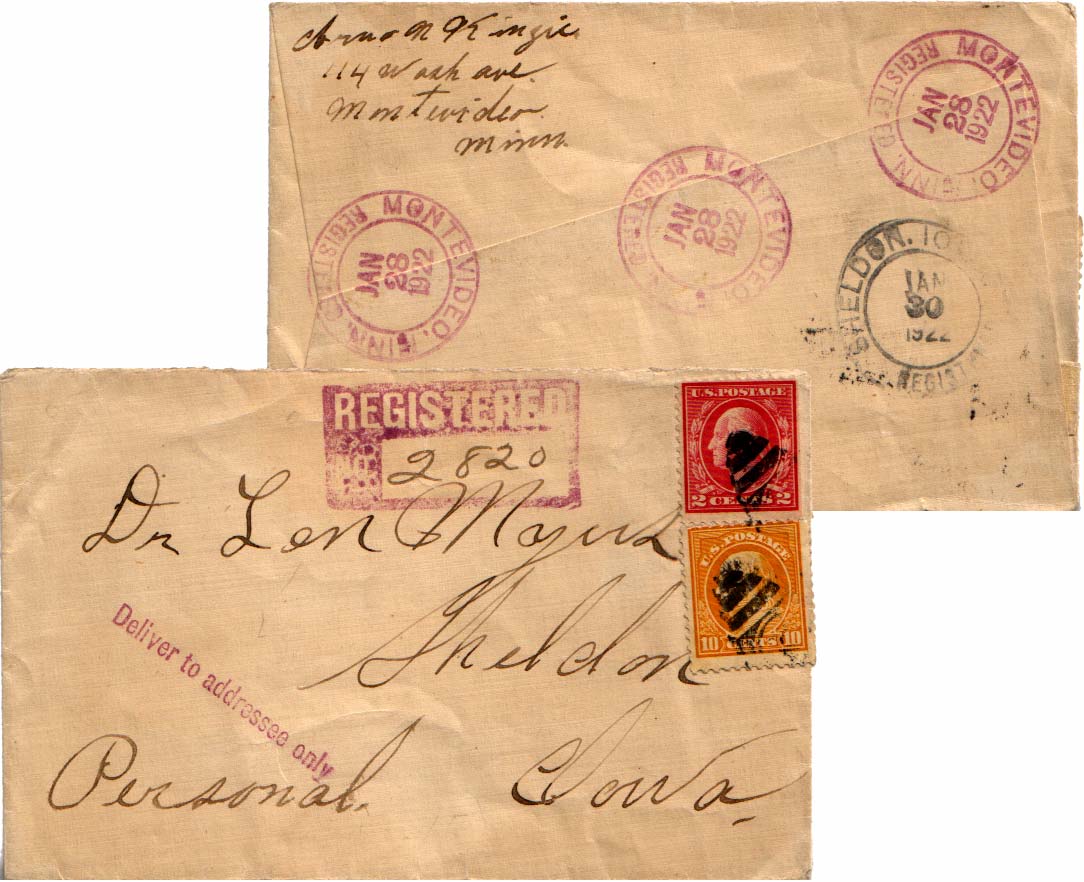 Arno N Kinzie
114 Wash ave.
Montevideo
Minn.
MONTEVIDEO, MINN.
REGISTERED
JAN
28
1922
MONTEVIDEO,
REGISTERED
JAN
28
1922
MONTEVIDEO, MINN.
REGISTERED
JAN
28
1922
SHELDON, IO
JAN
30
1922
REGIST
REGISTERED
2820
U.S. POSTAGE
2 CENTS 2
U.S. POSTAGE
10 CENTS 10
Dr Len Myers
Sheldon
Iowa
Deliver to addressee only
Personal.